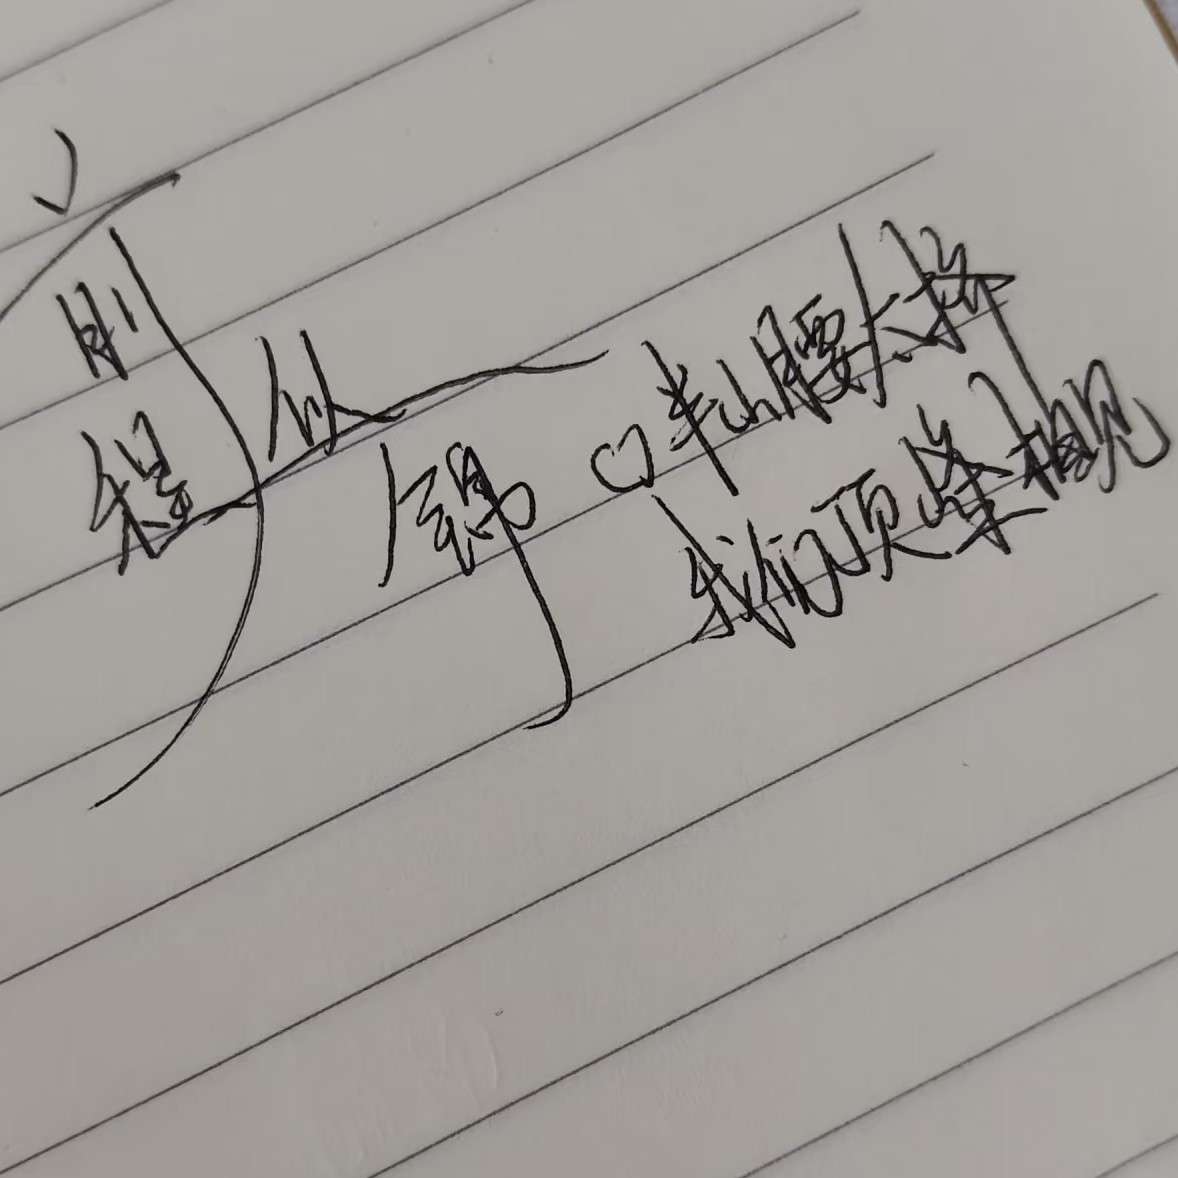 前
程
似
锦
♡ 半山腰太挤
我们顶峰相见